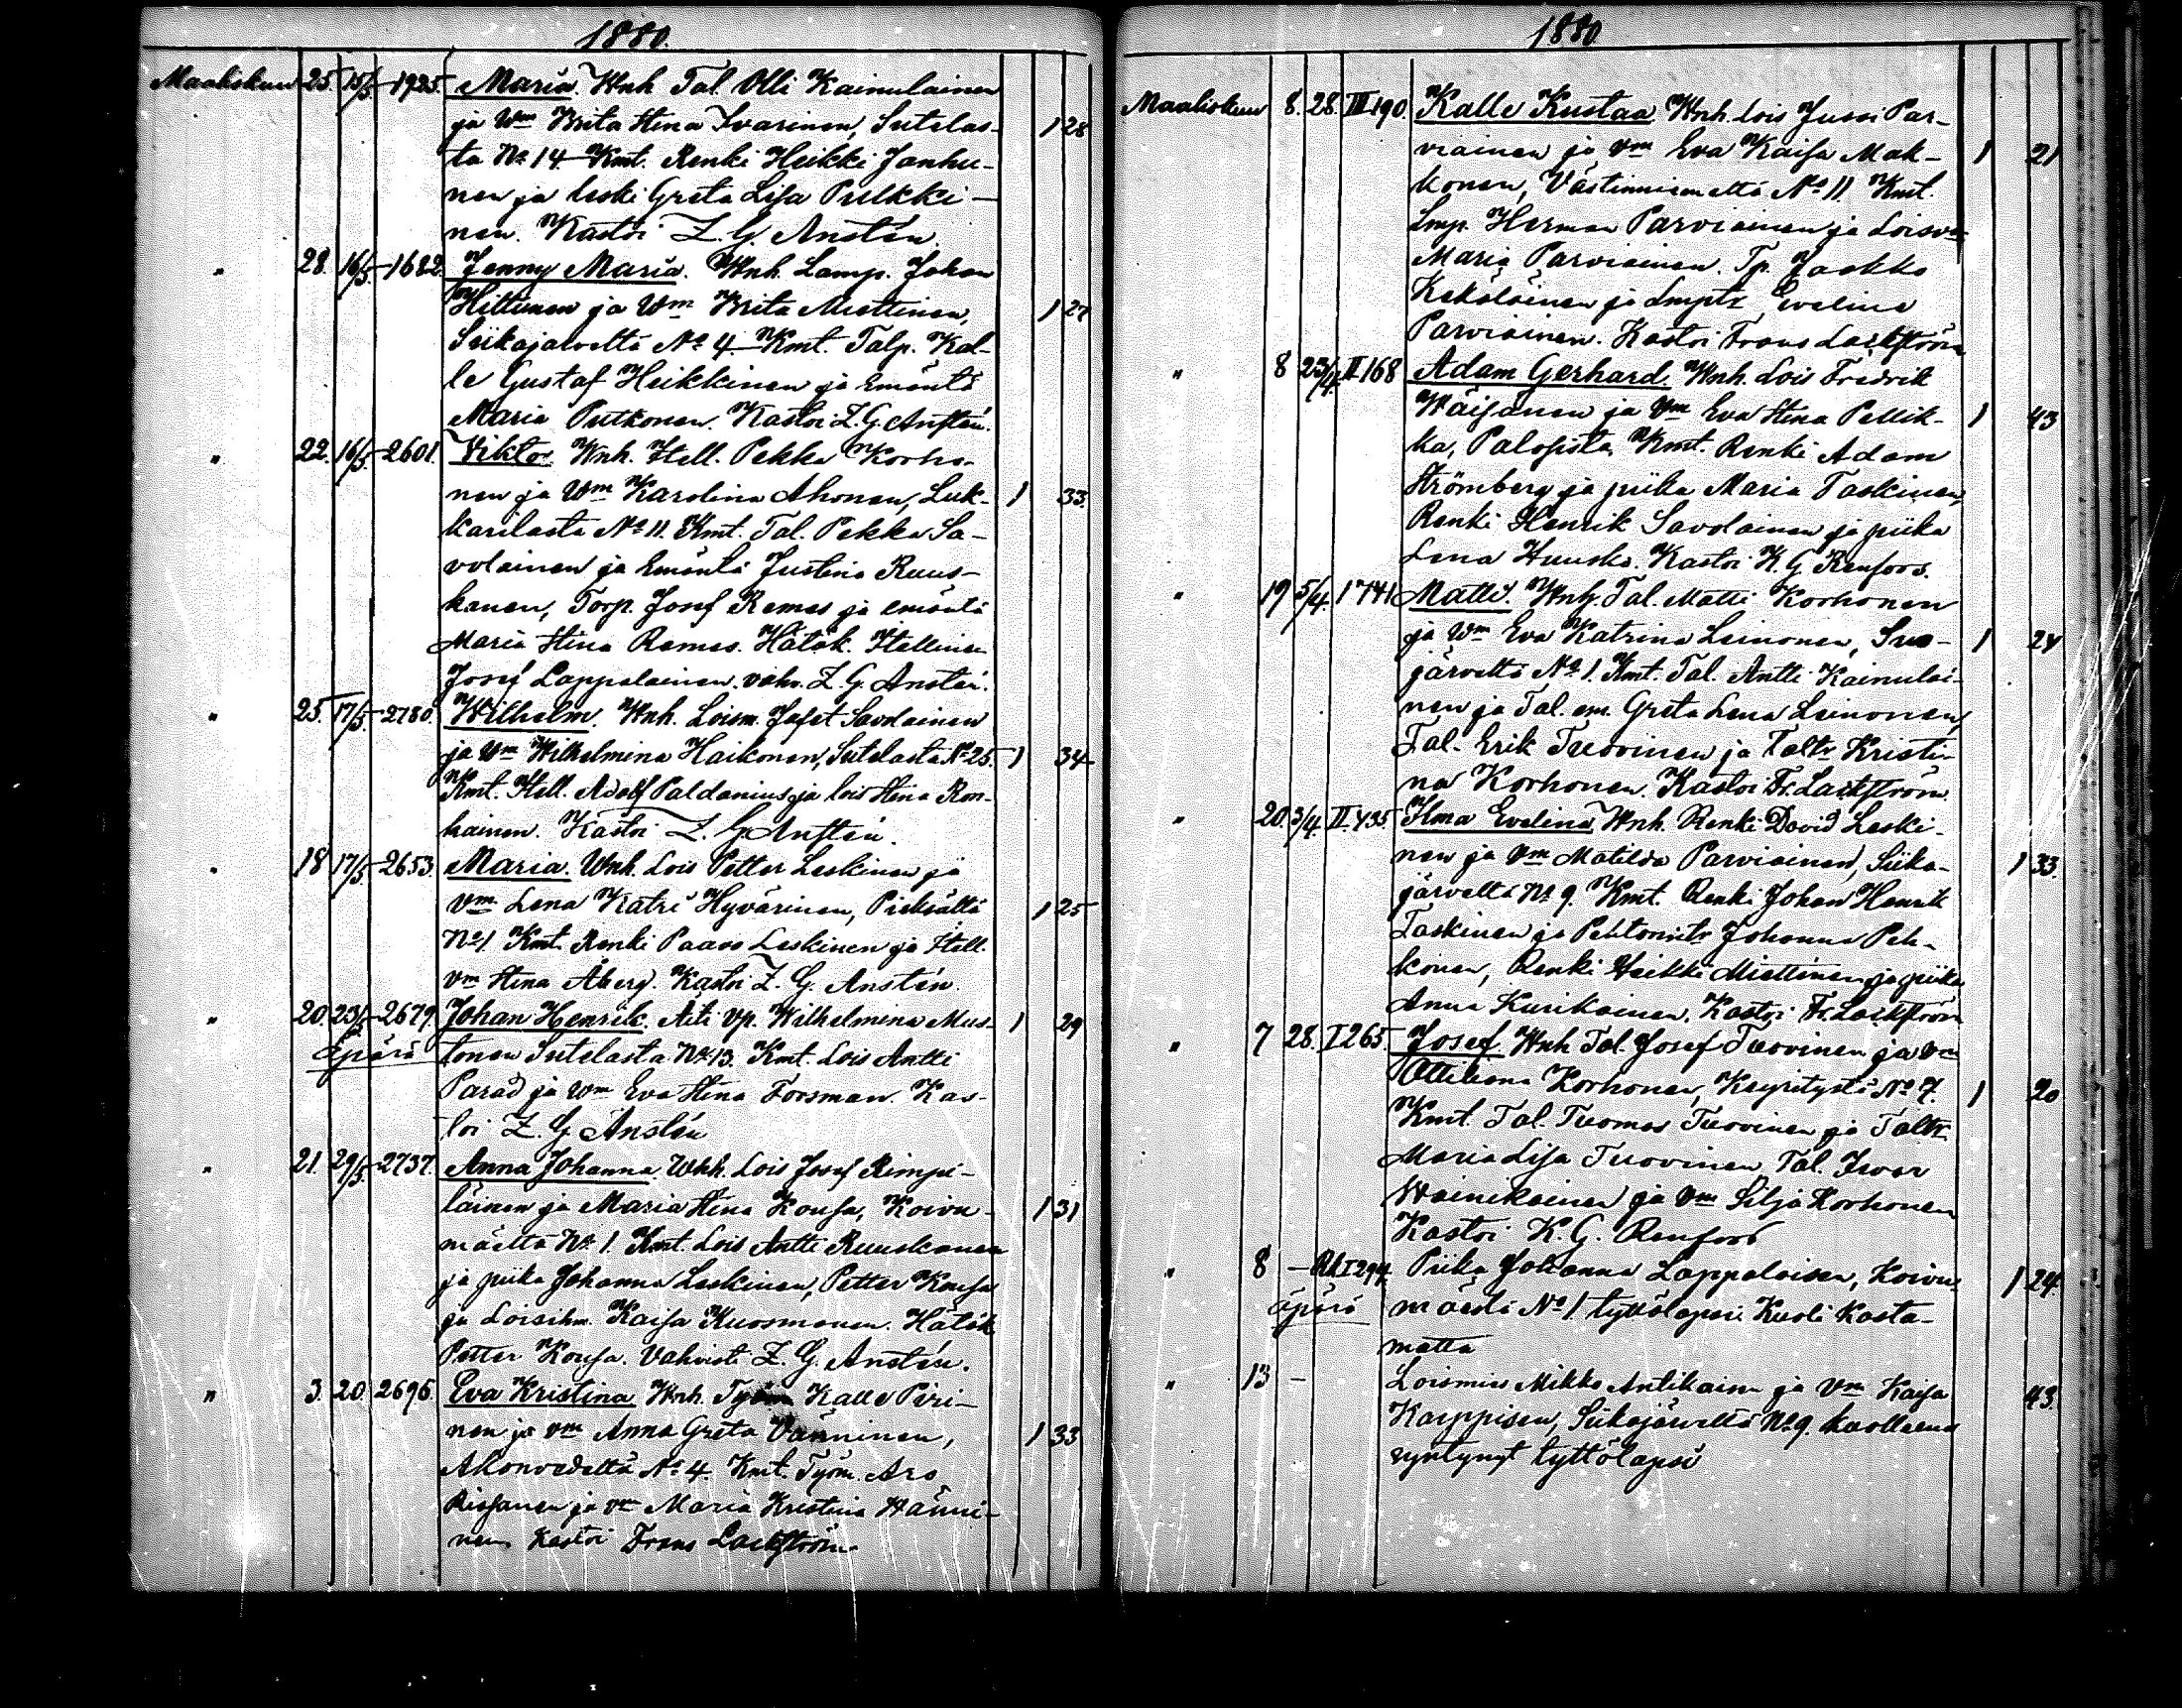 1880.
Maaliskuun 25. 15/5. 1925. Maria. Wnh. Tal. Olli Kainulainen
ja Wm Brita Stina Ivarinen, Sutelas- 1 28
ta No 14 Kmt. Renki Heikki Janhu-
nen ja leski Greta Lisa Pulkki-
nen. Kastoi Z. G. Anstén.
" 28. 16/5. 1682 Jenny Maria. Wnh. Lamp. Johan
Hiltunen ja Wm Brita Miettinen, 1 27
Siikajärveltä No 4. Kmt. Talp. Kal-
le Gustaf Heikkinen ja Emäntä
Maria Putkonen. Kastoi Z. G. Anstén.
" 22. 16/5. 2601. Viktor. Wnh. Itell. Pekka Korho-
nen ja Wm Karolina Ahonen, Luk- 1 33.
karilasta No 11. Kmt. Tal. Pekka Sa-
volainen ja Emäntä Justina Ruus-
kanen, Torp. Josef Remes ja emäntä
Maria Stina Remes. Hätäk. Itellinen
Josef Lappalainen. vahv. Z. G. Anstén.
" 25. 17/5. 2780. Wilhelm. Wnh. Loism. Jafet Savolainen
ja Wm Wilhelmina Haikonen, Sutelasta No 25. 1 34
Kmt. Itell. Adolf Paldanius ja lois Stina Ron-
kainen. Kastoi Z. G. Anstén.
" 18 17/5. 2653. Maria. Wnh. Lois Petter Leskinen ja
Vm Lena Katri Hyvärinen, Pieksältä 1 25
No 1 Kmt. Renki Paavo Leskinen ja Itell.
vm Stina Åberg. Kastoi Z. G. Anstén.
" 20. 23/5. 2679. Johan Henrik. Äiti Vp. Wilhelmina Mus- 1 29
äpärä tonen Sutelasta No 13. Kmt. Lois Antti
Parad ja Wm Eva Stina Forsman. Kas-
toi Z. G. Anstén
" 21. 29/5. 2737. Anna Johanna. Wnh. Lois Josef Rimpi-
läinen ja Maria Stina Kousa, Koivu- 1 31
mäeltä No 1. Kmt. Lois Antti Ruuskanen
ja piika Johanna Leskinen, Petter Kousa
ja Loisihm. Kaisa Kuosmanen. Hätäk.
Petter Kousa. Vahvisti Z. G. Anstén.
" 3. 20. 2696. Eva Kristina Wnh. Työm Kalle Piri-
nen ja vm Anna Greta Vänninen, 1 33
Akonvedeltä No 4. Kmt. Työm. Aro
Rissanen ja vm Maria Kristina Hänni-
nen Kastoi Frans Lackström
1880
Maaliskuun 8. 28. III 190. Kalle Kustaa Wnh. Lois Jussi Par-
viainen ja vm Eva Kaisa Mak- 1 21
konen, Västinniemeltä No 11. Kmt.
Lmp. Herman Parviainen ja Loisvm
Maria Parviainen. Tp. Jaakko
Kekäläinen ja Lmptr Eveline
Parviainen. Kastoi Frans Lackström
" 8 23/4. II 168 Adam Gerhard. Wnh. Lois Fredrik
Wäisänen ja Vm Eva Stina Pellik- 1 43
ka, Palosista. Kmt. Renki Adam
Strömberg ja piika Maria Taskinen,
Renki Henrik Savolainen ja piika
Lena Huusko. Kastoi K. G. Renfors.
" 19 5/4. 1741 Matti. Wnh. Tal. Matti Korhonen
ja Wm Eva Katrina Leinonen, Suo- 1 24
järveltä No 1. Kmt. Tal. Antti Kainulai-
nen ja Tal. em. Greta Lena Leinonen,
Tal. Erik Tuovinen ja Taltr Kristi-
na Korhonen. Kastoi Fr. Lackström.
" 20. 3/4. II. 435. Ilma Evelina Wnh. Renki David Leski-
nen ja Vm Matilda Parviainen, Siika- 1 33.
järveltä No 9. Kmt. Renki Johan Henrik
Taskinen ja Pehtoritr Johanna Pek-
konen, Renki Heikki Miettinen ja piika
Anna Kurikainen. Kastoi Fr. Lackström
" 7 28. I 265. Josef Wnh Tal. Josef Tuovinen ja vm
Attiliana Korhonen, Keyritystä No 7. 1 20
Kmt. Tal. Tuomas Tuovinen ja Taltr
Maria Lisa Tuovinen, Tal. Ivar
Wainikainen ja Vm Silja Korhonen
Kastoi K. G. Renfors
" 8 — RK I 294. Piika Johanna Lappalaisen, Koivu- 1 24.
äpärä mäesti No 1 tyttölapsi. Kuoli kasta-
matta
" 13 — Loismies Mikko Antikaisen ja Vm Kaisa 43.
Karppisen, Siikajärveltä No 9. kuolleena
syntynyt tyttölapsi